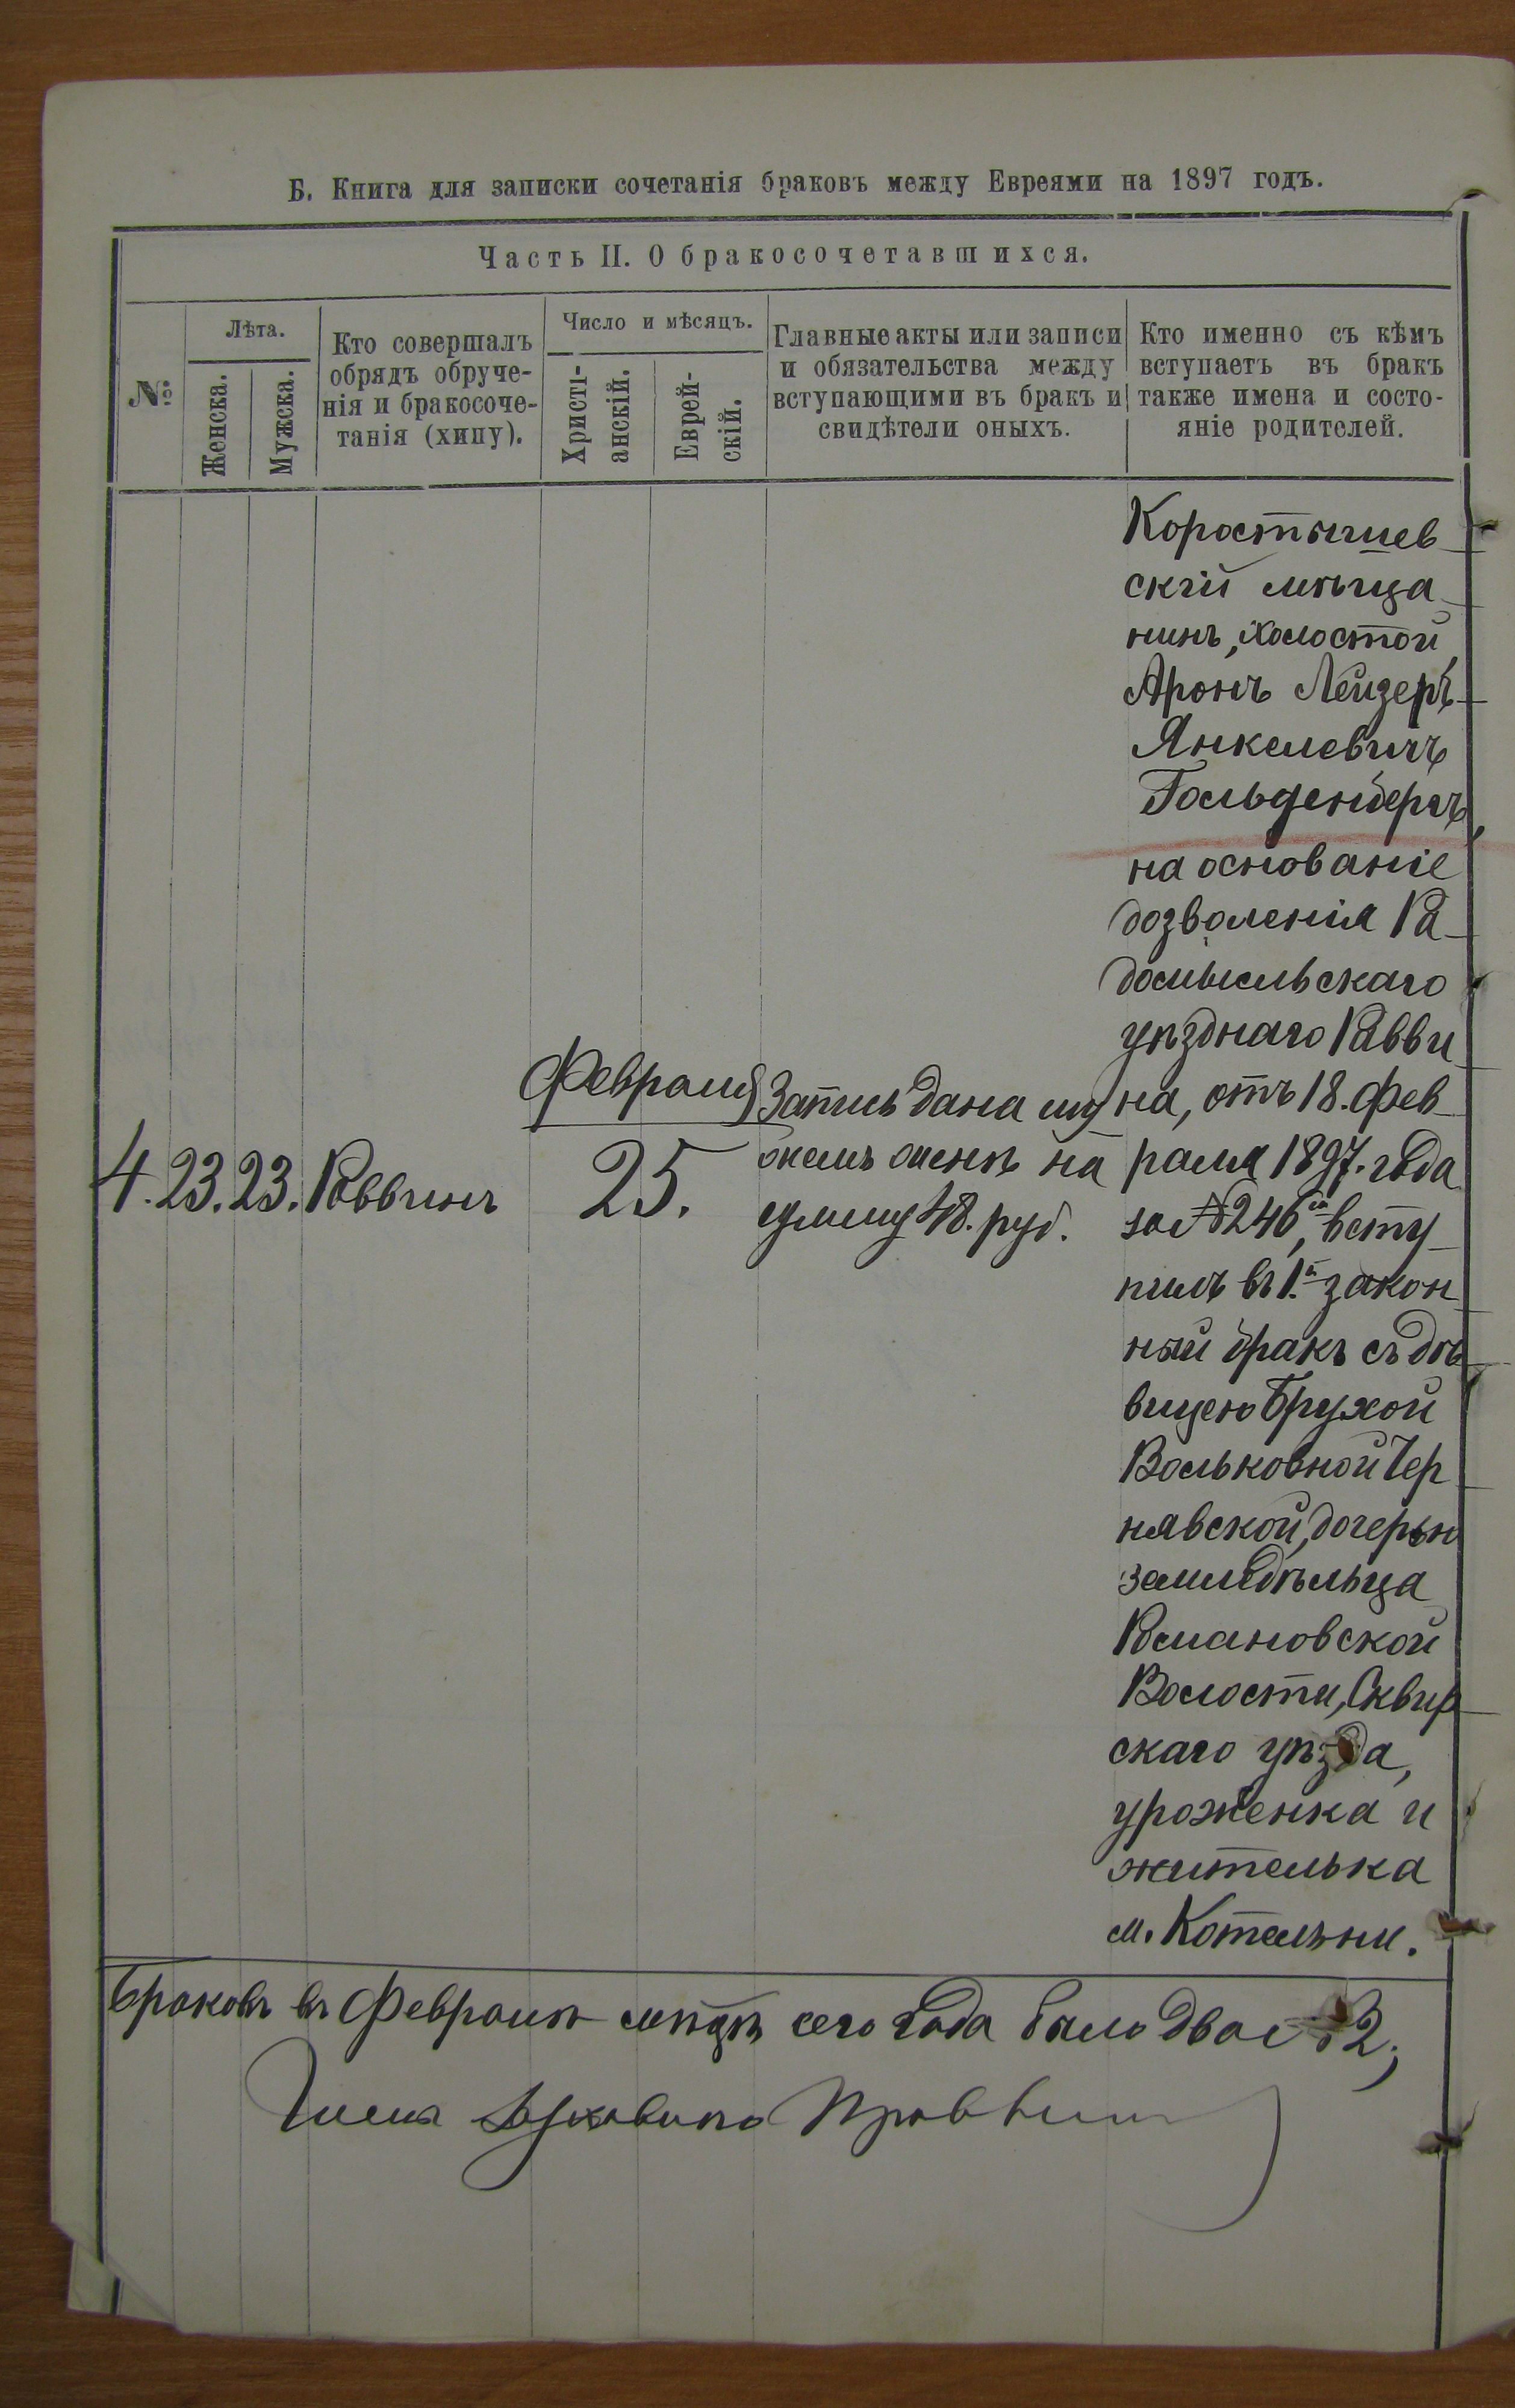 Б. Книга для записки сочетанія браковъ между Евреями на 1897 годъ.
Часть II. О бракосочетавшихся.
№
Лѣта.
Женска.
Мужска.
Кто совершалъ
обрядъ обруче-
нія и бракосоче-
танія (хипу).
Число и мѣсяцъ.
Христі-
анскій.
Еврей-
скій.
Главные акты или записи
и обязательства между
вступающими въ бракъ и
свидѣтели оныхъ.
Кто именно съ кѣмъ
вступаетъ въ бракъ
также имена и состо-
яніе родителей.
4. 23. 23. Раввинъ
Февраля
25.
Запись дана му
жемъ женѣ на
сумму 48. руб.
Коростышев
скій мѣща
нинъ, холостой,
Аронъ Лейзеръ
Янкелевичъ
Гольденбергъ,
на основаніе
дозволенія Ра
домысльскаго
уѣзднаго Равви
на, отъ 18. Фев
раля 1897. года
за № 246, всту
пилъ въ 1.й закон
ный бракъ съ дѣ
вицею Брухой
Вольковной Чер
нявской, дочерью
земледѣльца
Романовской
Волости, Сквир
скаго уѣзда,
уроженка и
жителька
м. Котельни.
Браковъ въ Февралѣ мѣцѣ сего года было два № 2;